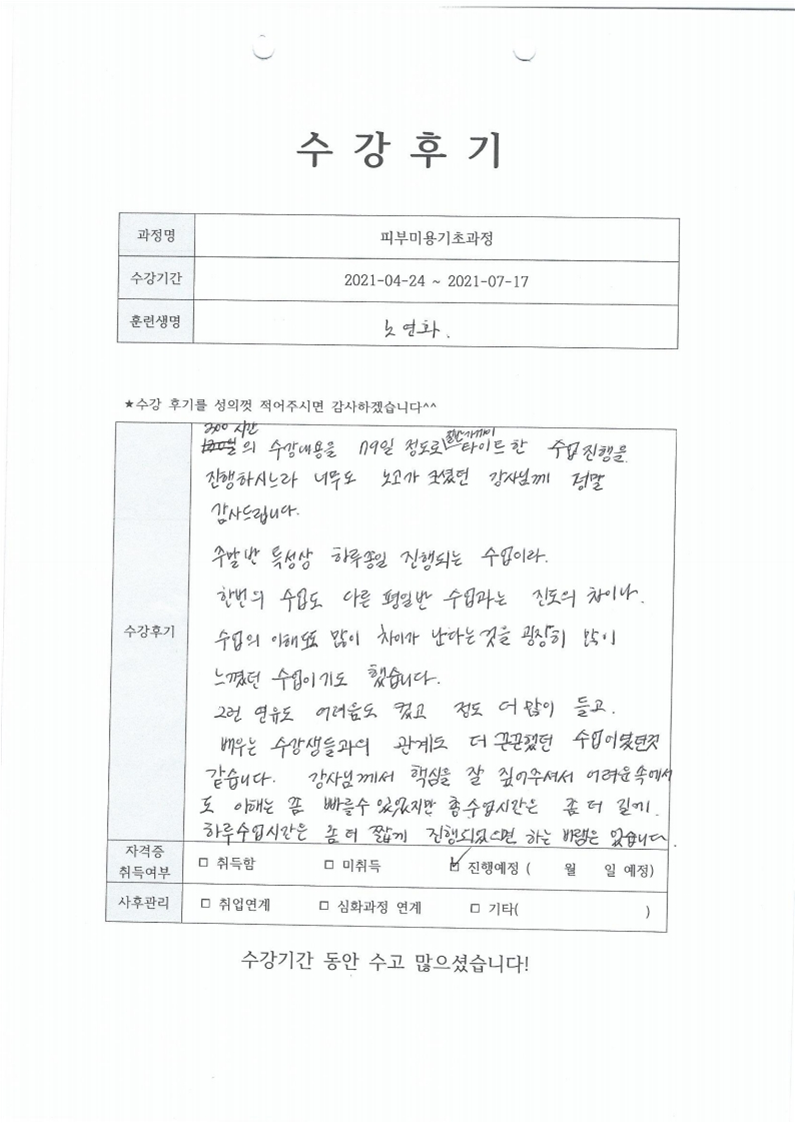 수 강 후 기
과정명 피부미용기초과정
수강기간 2021-04-24 ~ 2021-07-17
훈련생명 노연화.
★수강 후기를 성의껏 적어주시면 감사하겠습니다^^
200 시간
의 수강내용을 정도로 타이트한 수업진행을
진행하시느라 너무도 노고가 크셨던 강사님께 정말
감사드립니다.
주말반 특성상 하루종일 진행되는 수업이라.
한번의 수업도 다른 평일반 수업과는 진도의 차이나.
수강후기
수업의 이해도로 많이 차이가 난다는것을 굉장히 많이
느꼈던 수업이기도 했습니다.
그런 연유도 어려움도 컸고 정도 더 많이 들고.
배우는 수강생들과의 관계도 더 끈끈했던 수업이였던것
같습니다. 강사님께서 핵심을 잘 짚어주셔서 어려운속에서
도 이해는 쫌 빠를수 있었지만 총수업시간은 좀 더 길게.
하루수업시간은 좀 더 짧게 진행되었으면 하는 바램은 있습니다.
자격증
취득여부 □ 취득함 □ 미취득 ☑ 진행예정 ( 월 일 예정)
사후관리 □ 취업연계 □ 심화과정 연계 □ 기타( )
수강기간 동안 수고 많으셨습니다!